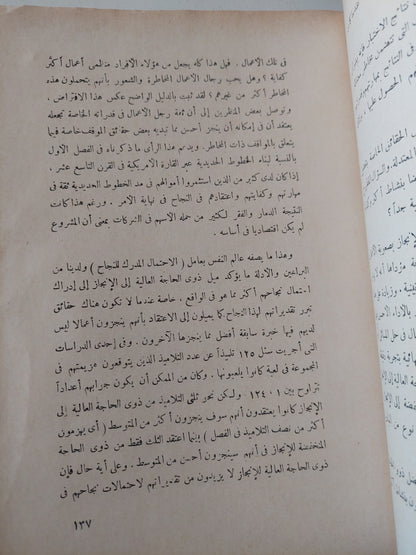 فى تلك الاعمال. فهل هذا كله يجعل من هؤلاء الافراد منظمى أعمال أكثر
كفاية؟ وهل يجب رجال الاعمال المخاطرة والشعور بأنهم يتحملون هذه
المخاطر أكثر من غيرهم؟ لقد ثبت بالدليل الواضح عكس هذا الافتراض،
وتوصل بعض المناظرين إلى أن ثقة رجل الاعمال فى قدراته الخاصة تجعله
يعتقد أن فى إمكانه أن ينجز أحسن مما تبديه بعض حقائق الموقف خاصة فيما
يتعلق بالمواقف ذات المخاطر. ويدعم هذا الرأى ما ذكرناه فى الفصل الاول
بالنسبة لبناء الخطوط الحديدية عبر القارة الامريكية فى القرن التاسع عشر،
إذا كان لدى كثير من الذين استثمروا أموالهم فى مد الخطوط الحديدية ثقة فى
مهارتهم وكفايتهم واعتقادهم فى النجاح فى نهاية الامر. ورغم هذا كانت
النتيجة الدمار والفقر لكثير من حملة الاسهم فى الشركات بمعنى أن المشروع
لم يكن اقتصاديا فى أساسه.
وهذا ما يصفه عالم النفس بعامل (الاحتمال المدرك للنجاح) ولدينا من
البراهين والادلة ما يؤكد ميل ذوى الحاجة العالية إلى الإنجاز إلى إدراك
احتمال نجاحهم أكثر مما هو فى الواقع، خاصة عندما لا تكون هناك حقائق
تبرر تقديراتهم لهذا النجاح كما يميلون إلى الاعتقاد بأنهم ينجزون أعمالا ليس
لديهم فيها خبرة سابقة أفضل مما ينجزها الآخرون. وفى إحدى الدراسات
التى أجريت سئل ١٢٥ تلميذاً عن عدد التلاميذ الذين يتوقعون هزيمتهم فى
المجموعة فى لعبة كانوا يلعبونها. وكان من الممكن أن يكون جوابهم أعداداً
تتراوح بين ١ و ١٢٤. ولكن نحو ثلثى التلاميذ من ذوى الحاجة العالية إلى
الإنجاز كانوا يعتقدون أنهم سوف ينجزون أكثر من المتوسط (أى يهزمون
أكثر من نصف التلاميذ فى الفصل) بينما اعتقد الثلث فقط من ذوى الحاجة
المنخفضة للإنجاز فى أنهم سينجزون أحسن من المتوسط. وعلى أية حال فإن
ذوى الحاجة العالية للإنجاز لا يزيدون من تقديراتهم لاحتمالات نجاحهم فى
١٣٧